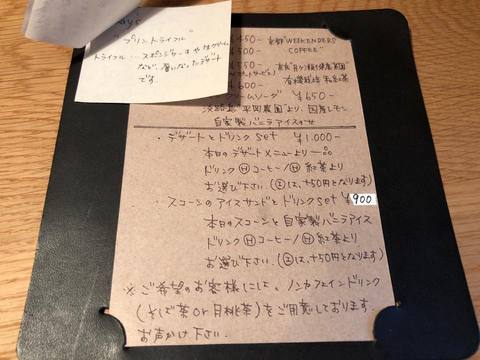 "プリントライフル"
トライフル…スポンジケーキや生クリーム
など、層になったデザート
です。
450- 京都"WEEKENDERS
500- COFFEE"
550-
600-
クリームソーダ ¥650-
淡路島 平岡農園より、国産レモン
自家製バニラアイスのせ
・デザートとドリンクset ¥1,000-
本日のデザートメニューより一点
ドリンクⒽコーヒー/Ⓗ紅茶より
お選び下さい。(Ⓘは、+50円となります)
・スコーンのアイスサンドとドリンクset ¥900
本日のスコーンと自家製バニラアイス
ドリンクⒽコーヒー/Ⓗ紅茶より
お選び下さい。(Ⓘは、+50円となります)
※ご希望のお客様にじて、ノンカフェインドリンク
(そして茶or月桃茶)をご用意しております
お声かけ下さい。